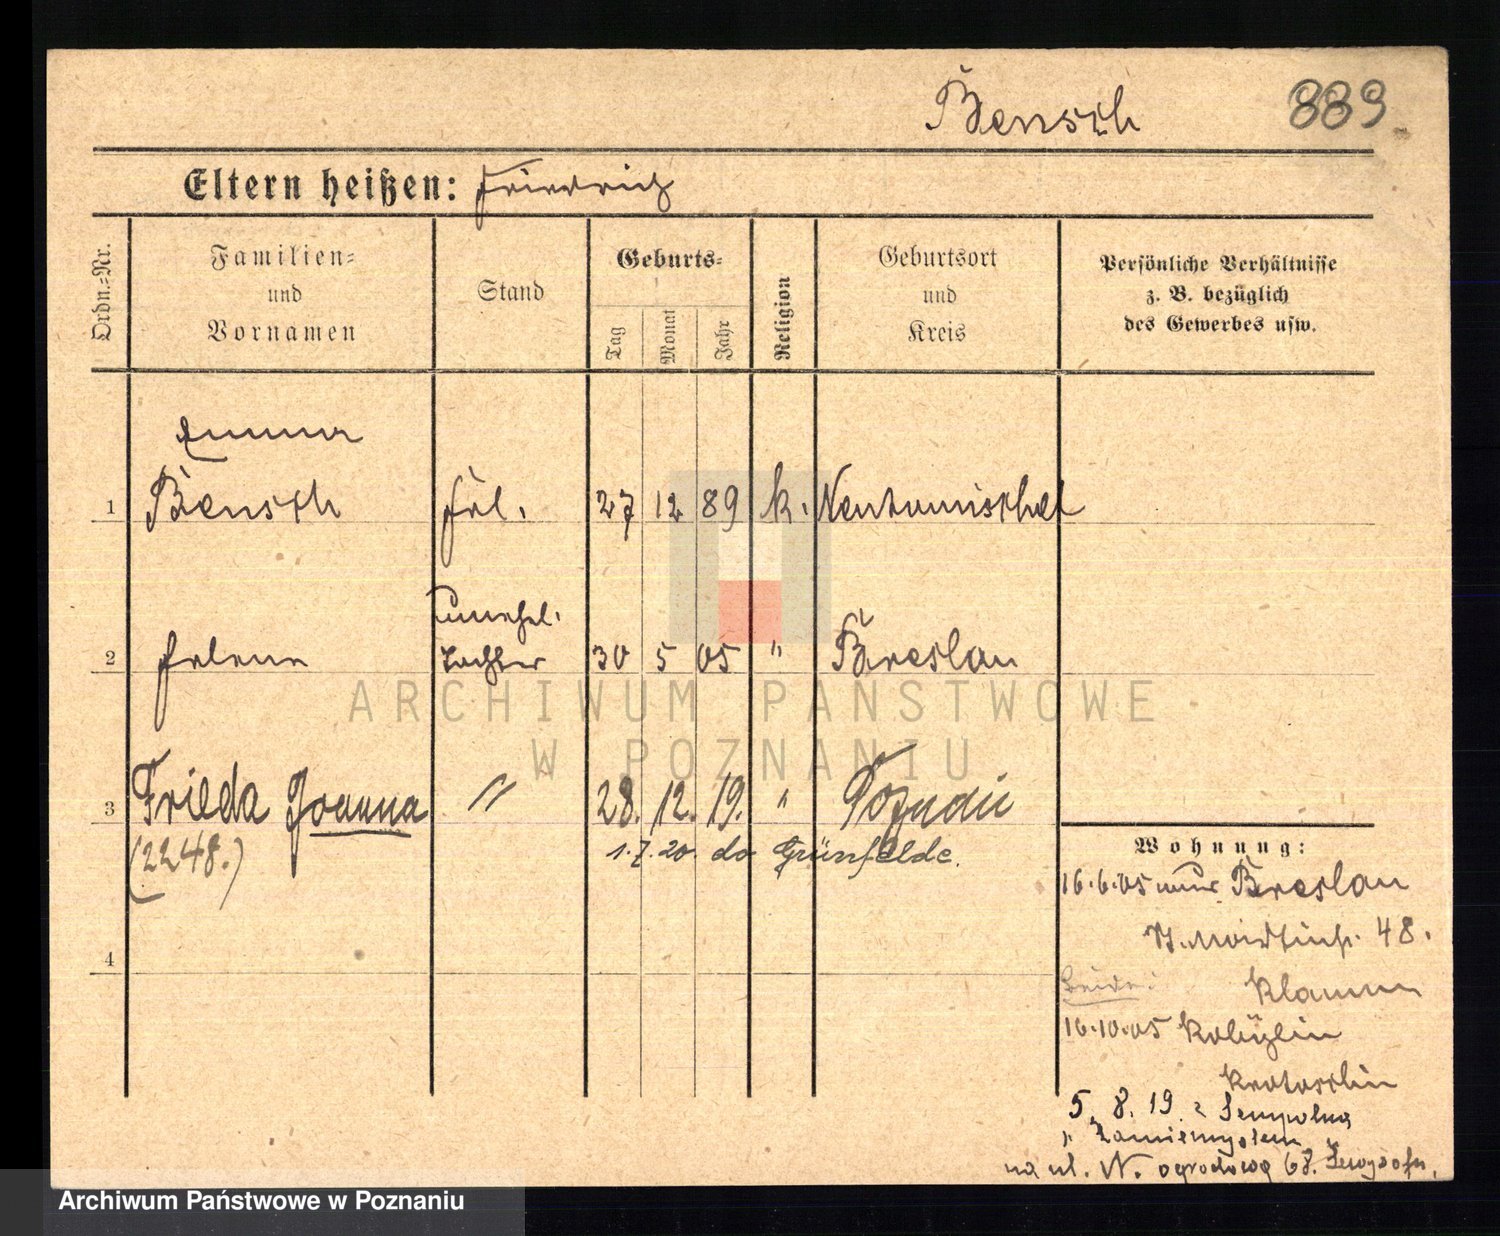 Bensch 889
Eltern heißen: Friedrich
Ordn.-Nr.
Familien-
und
Vornamen
Stand
Geburts-
Tag
Monat
Jahr
Religion
Geburtsort
und
Kreis
Persönliche Verhältnisse
z. B. bezüglich
des Gewerbes usw.
Emma
1 Bensch Frl. 27 12 89 k. Neutomischel
unehel.
2 Helene Tochter 30 5 05 " Breslau
3 Frieda Joanna " 28. 12. 19. " Poznań
(2248.) 1.7.20. do Grünfelde.
4
Wohnung:
16.6.05 Breslau
48.
Beide:
16.10.05 Kobylin
Krotoschin
5. 8. 19 z
"
na ul. N. ogrodową 68.
ARCHIWUM PAŃSTWOWE
W POZNANIU
Archiwum Państwowe w Poznaniu